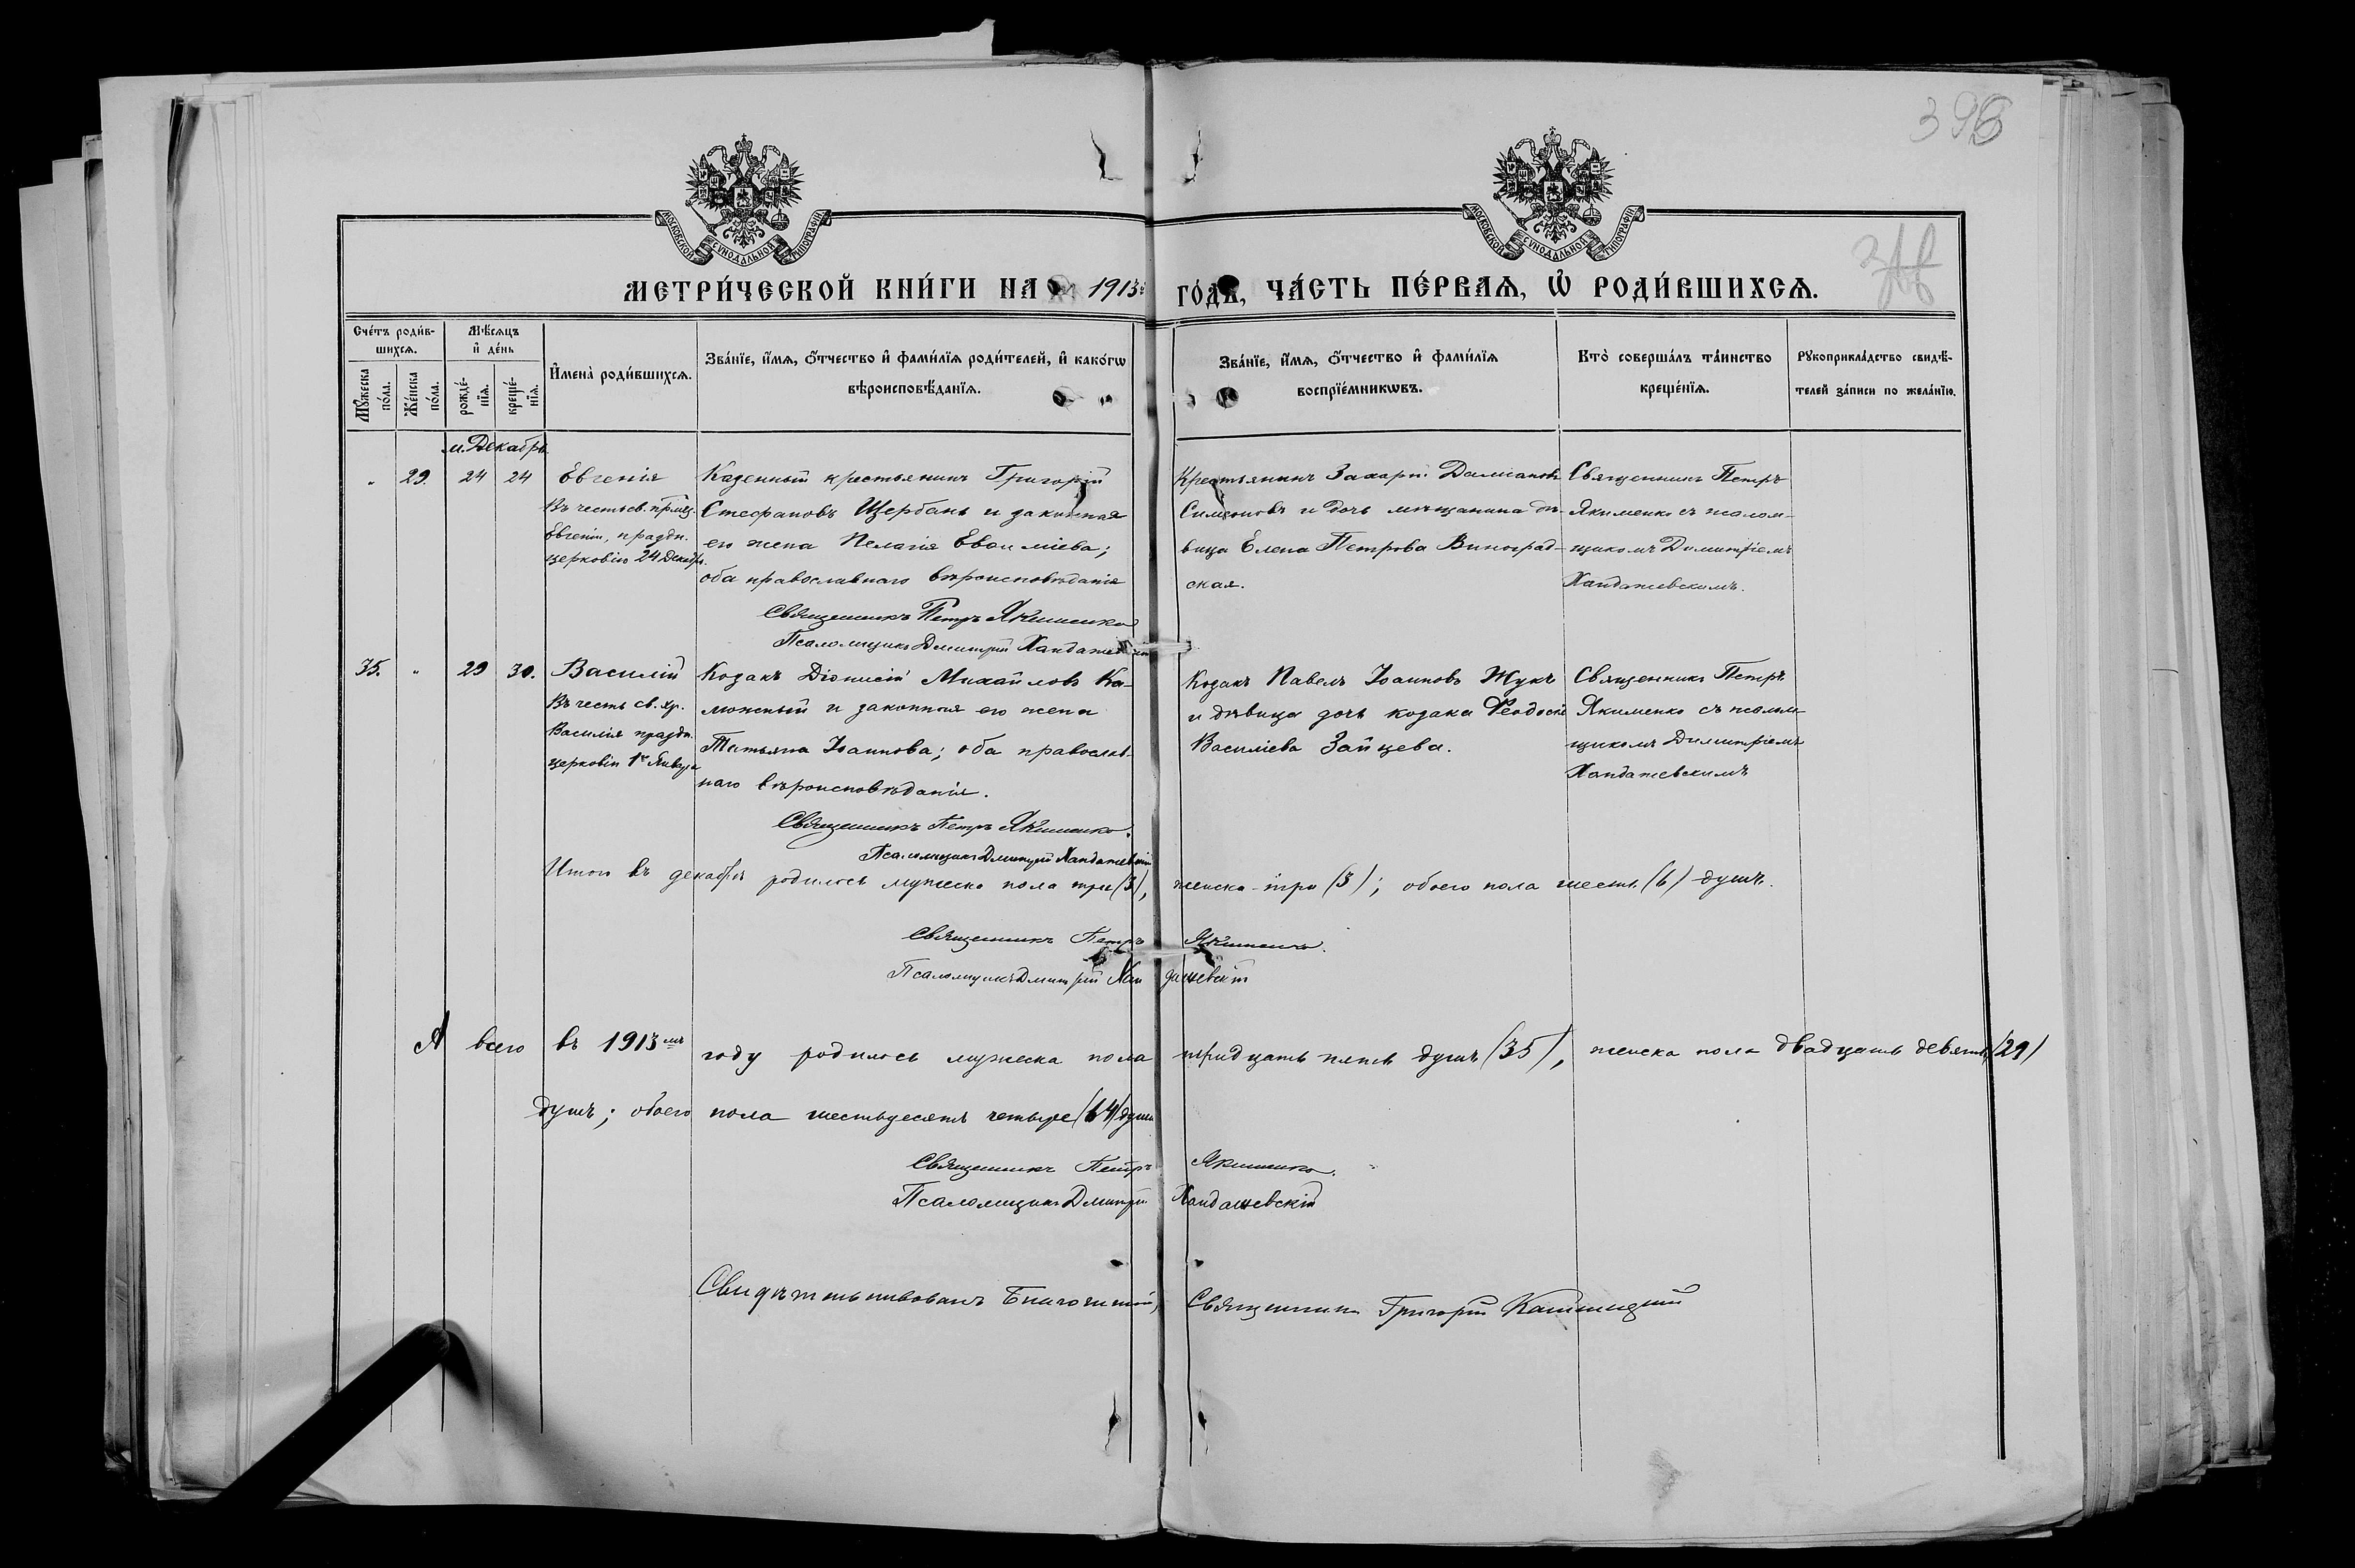 396
МОСКОВСКОЙ СУНОДАЛЬНОЙ ТИПОГРАФІИ
МОСКОВСКОЙ СУНОДАЛЬНОЙ ТИПОГРАФІИ
МЕТРИ́ЧЕСКОЙ КНИ́ГИ НА 1913й ГО́ДЪ, ЧА́СТЬ ПЕ́РВАѦ, Ѡ҆ РОДИ́ВШИХСѦ.
Сче́тъ роди́в-
шихсѧ.
Мꙋ́жеска по́ла.
Же́нска по́ла.
Мѣ́сѧцъ
и҆ де́нь
рожде́-
нїѧ.
креще́-
нїѧ.
И҆мена̀ роди́вшихсѧ.
Зва́нїе, и҆́мѧ, ѻ҆́тчество и҆ фами́лїѧ роди́телей, и҆ како́гѡ
вѣроисповѣ́данїѧ.
Зва́нїе, и҆́мѧ, ѻ҆́тчество и҆ фами́лїѧ
воспрїе́мникѡвъ.
Кто̀ соверша́лъ та́инство
креще́нїѧ.
Рꙋкоприкла́дство свидѣ́-
телей за́писи по жела́нїю.
м. Декабрь
" 29. 24 24
Евгенія
Въ честь св. прмц.
Евгеніи, праздн.
церковію 24 Декабря.
Казенный крестьянинъ Григорій
Стефановъ Щербань и законная
его жена Пелагія
оба православнаго вѣроисповѣданія
Священникъ Петръ Якименко
Псаломщикъ Дмитрій
Крестьянинъ Захарій Даміановъ
Симоновъ и дочь мѣщанина дѣ-
вица Елена Петрова Виноград-
ская.
Священникъ Петръ
Якименко съ псалом-
щикомъ Димитріемъ
Хандажевскимъ.
35. " 29 30.
Василій
Въ честь св. хр.
Василія праздн.
церковію 1го Января
Козакъ Діонисій Михайловъ Ка-
мюжный и законная его жена
Татьяна Іоаннова; оба православ-
наго вѣроисповѣданія.
Священникъ Петръ Якименко.
Псаломщикъ Дмитрій Хандажевскій
Козакъ Павелъ Іоанновъ Жукъ
и дѣвица дочь козака Ѳеодосія
Василіева Зайцева.
Священникъ Петръ
Якименко съ псалом-
щикомъ Димитріемъ
Хандажевскимъ
Итого въ декабрѣ родилось мужеска пола три (3), женска - три (3); обоего пола шесть (6) душъ.
Священникъ Петръ Якименко.
Псаломщикъ Дмитрій Хандажевскій
А всего въ 1913мъ году родилось мужеска пола тридцать пять душъ (35), женска пола двадцать девять (29)
душъ; обоего пола шестьдесятъ четыре (64) души
Священникъ Петръ Якименко.
Псаломщикъ Дмитрій Хандажевскій
Свидѣтельствовалъ Благочинный, Священникъ Григорій